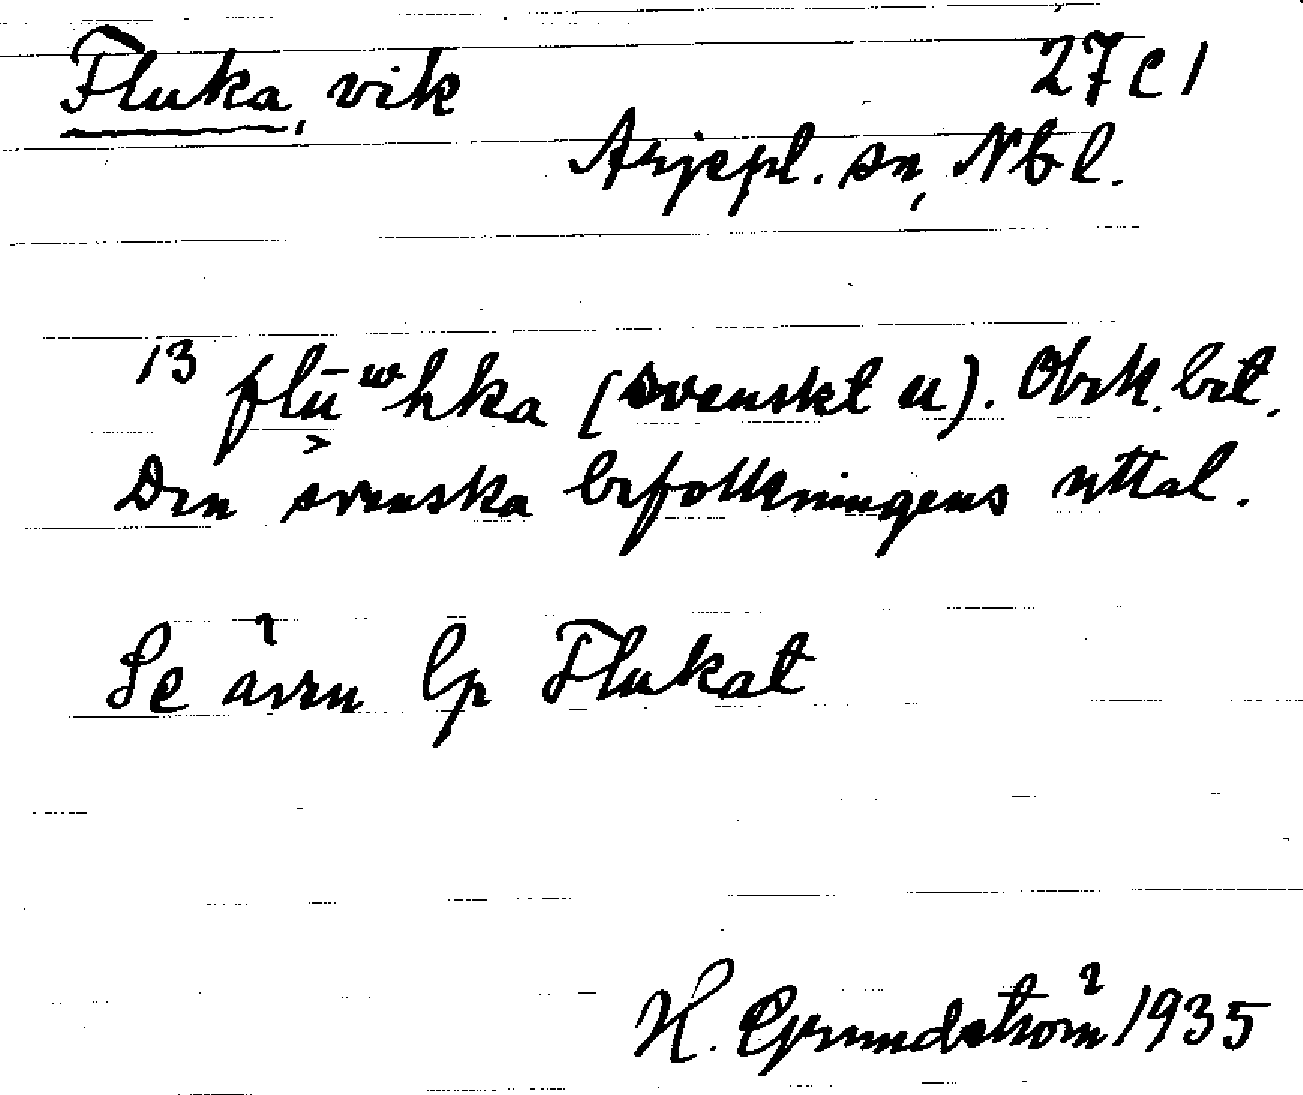 Fluka, vik 27 C 1
Arjepl. sn, Nbl.
13 flūʷhka (svenskt u). Obek. bet.
Den svenska befolkningens uttal.
Se även lp Flukat
H. Grundström 1935